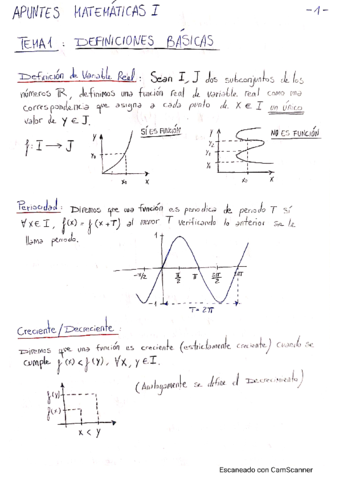 APUNTES MATEMÁTICAS I -1-
TEMA 1: DEFINICIONES BÁSICAS
Definición de Variable Real: Sean I, J dos subconjuntos de los
números ℝ, definimos una función real de variable real como una
correspondencia que asigna a cada punto de x ∈ I un único
valor de y ∈ J.
SÍ ES FUNCIÓN
NO ES FUNCIÓN
f: I → J
y
y₀
x₀
x
y
y₀
x₀
x
Periocidad: Diremos que una función es periodica de periodo T si
∀x ∈ I, f(x) = f(x+T) al menor T verificando lo anterior se le
llama periodo.
1
-π/2
π/2
π
3π/2
2π
-1
T = 2π
Creciente/Decreciente:
Diremos que una función es creciente (estrictamente creciente) cuando se
cumple f(x) < f(y), ∀x, y ∈ I.
(Análogamente se define el Decrecimiento)
f(y)
f(x)
x < y
Escaneado con CamScanner